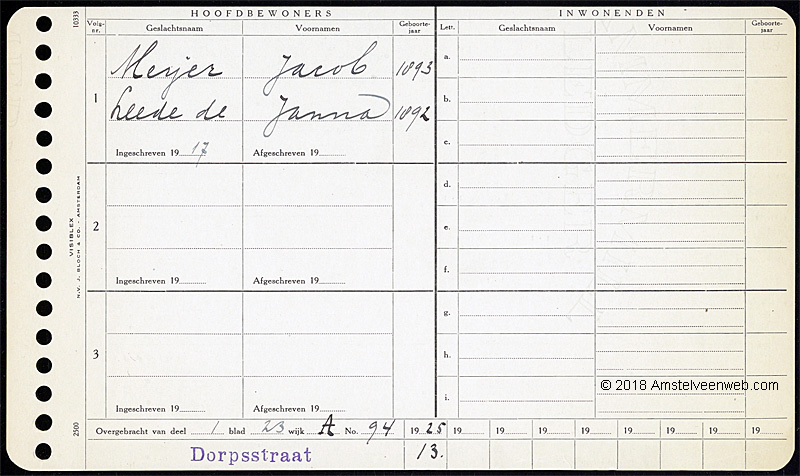 HOOFDBEWONERS
INWONENDEN
10333
Volg-nr.
Geslachtsnaam
Voornamen
Geboorte-jaar
Lett.
Geslachtsnaam
Voornamen
Geboorte-jaar
1
Meijer Jacob 1893
Leede de Janna 1892
Ingeschreven 19 17
Afgeschreven 19
2
Ingeschreven 19
Afgeschreven 19
3
Ingeschreven 19
Afgeschreven 19
a.
b.
c.
d.
e.
f.
g.
h.
i.
VISIBLEX
N.V. J. BLOCH & CO. - AMSTERDAM
2500
© 2018 Amstelveenweb.com
Overgebracht van deel 1 blad 23 wijk A No. 94 1925 19 19 19 19 19 19 19 19
Dorpsstraat 13.